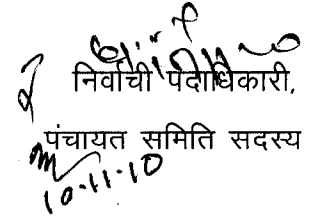 निर्वाची पदाधिकारी,
पंचायत समिति सदस्य
10.11.10